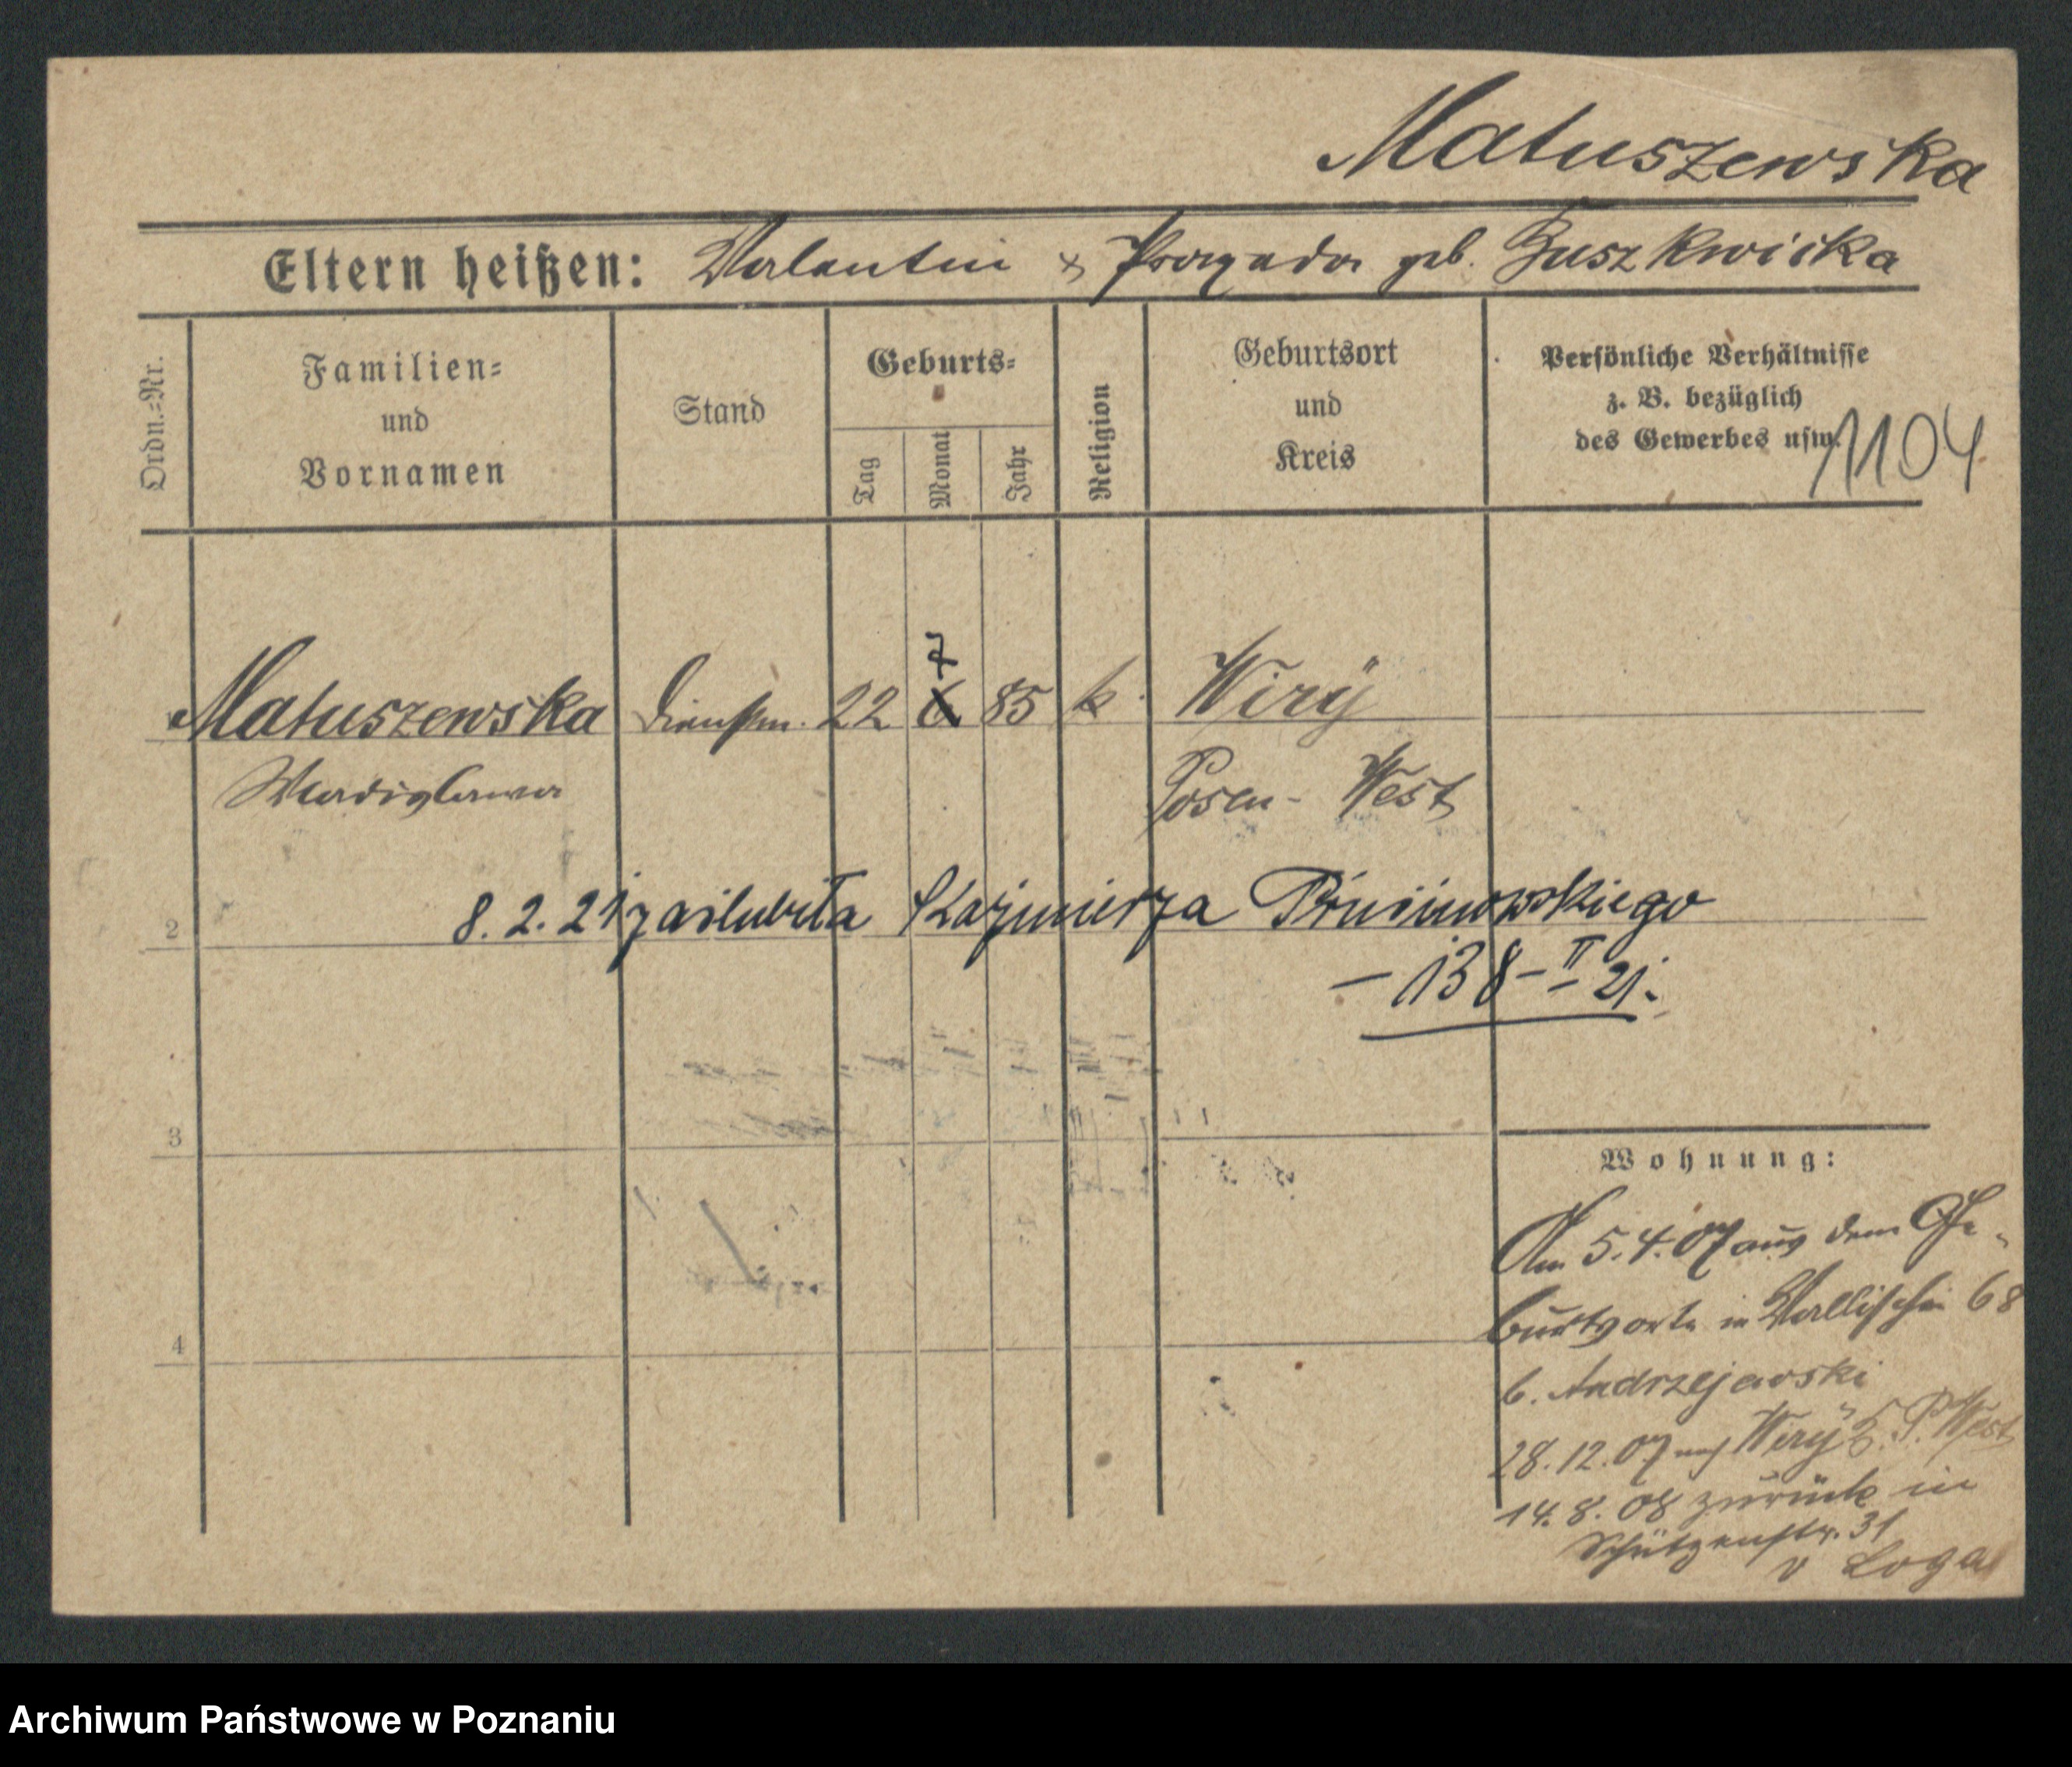 Matuszewska
Eltern heißen: Valentin & Pragada geb. Zuszkwicka
Ordn.=Nr.
Familien=
und
Vornamen
Stand
Geburts=
Tag
Monat
Jahr
Religion
Geburtsort
und
Kreis
Persönliche Verhältnisse
z. B. bezüglich
des Gewerbes usw.
1104
7
Matuszewska Dienstm. 22 6 85 k. Wirÿ
Wladislawa Posen - West
2 8.2.21 zaślubiła Kazimierza
– 138 – II 21.
3
Wohnung:
Am 5.4.07 aus dem Ge-
burtsorte in Wallischei 68
b. Andrzejewski
4
28.12.07 nach Wirÿ K. P. West
14.8.08 zurück in
Schützenstr. 31
v Loga
Archiwum Państwowe w Poznaniu